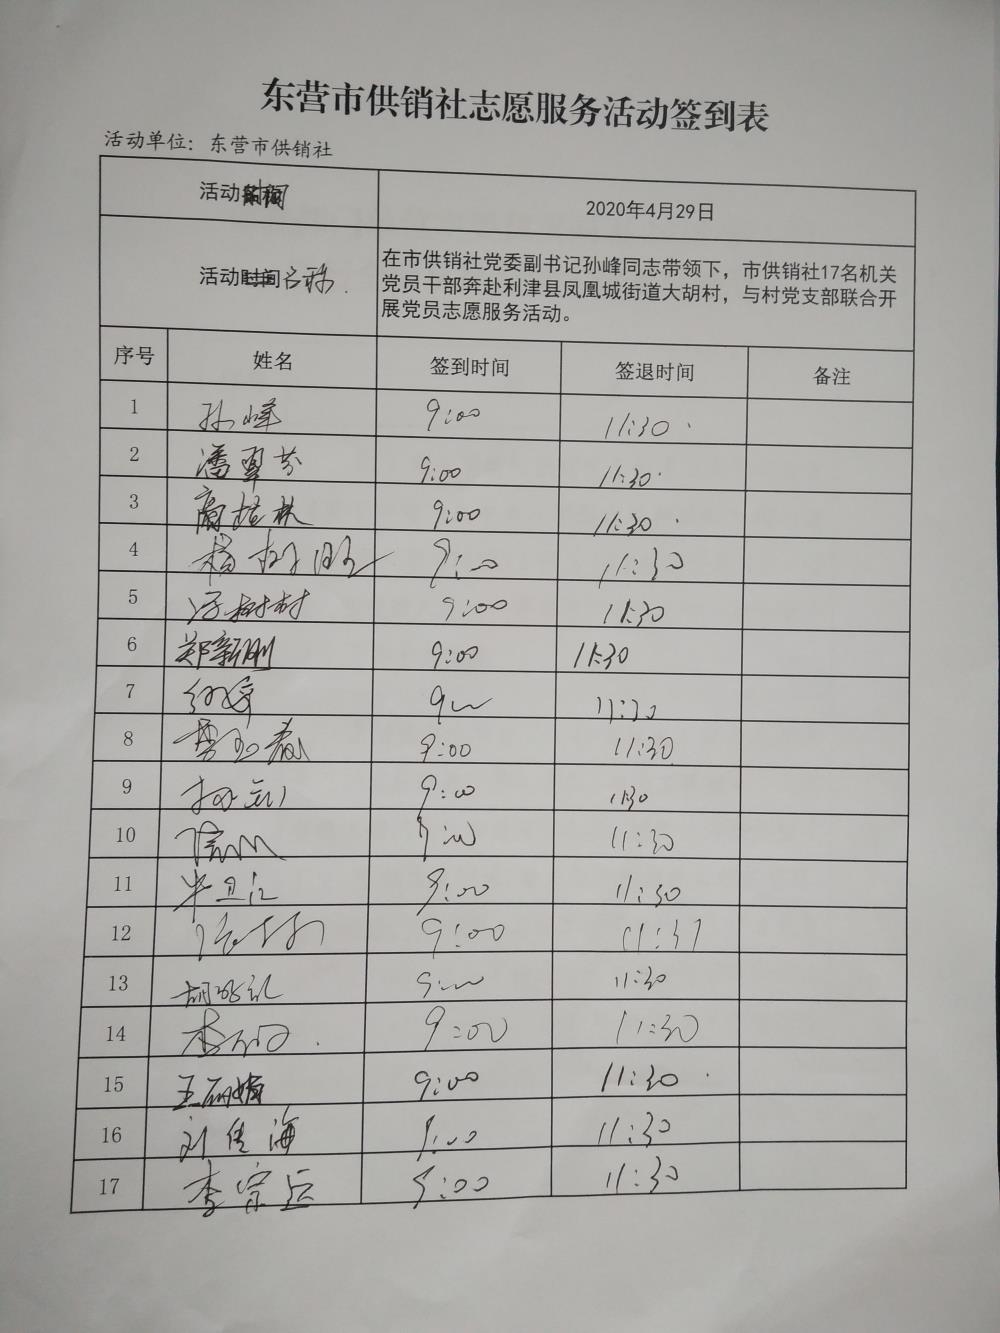 东营市供销社志愿服务活动签到表
活动单位：东营市供销社
活动时间 2020年4月29日
活动名称.
在市供销社党委副书记孙峰同志带领下，市供销社17名机关
党员干部奔赴利津县凤凰城街道大胡村，与村党支部联合开
展党员志愿服务活动。
序号 姓名 签到时间 签退时间 备注
1 孙峰 9:00 11:30
2 潘翠芬 9:00 11:30
3 9:00 11:30
4 9:00 11:30
5 9:00 11:30
6 郑新刚 9:00 11:30
7 11:30
8 9:00 11:30
9 9:00 11:30
10 9:00 11:30
11 毕卫江 9:00 11:30
12 9:00 11:31
13 11:30
14 9:00 11:30
15 9:00 11:30
16 刘传海 9:00 11:30
17 李宗运 9:00 11:30